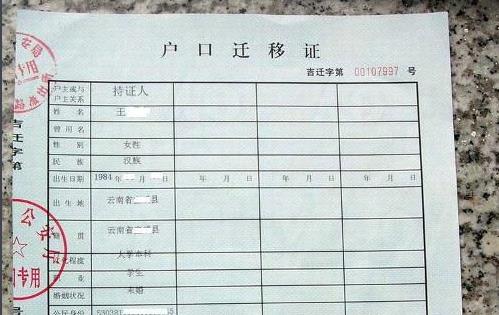 户口迁移证
吉迁字第 00107997 号
户主或与
户主关系 持证人
姓名 王
曾用名
性别 女性
民族 汉族
出生日期 1984 年 月 日 年 月 日 年 月 日 年 月 日
出生地 云南省 县
籍贯 云南省 县
文化程度 大学本科
职业 学生
婚姻状况 未婚
公民身份 530381 45
吉迁字第
号
专用
公安厅
专用